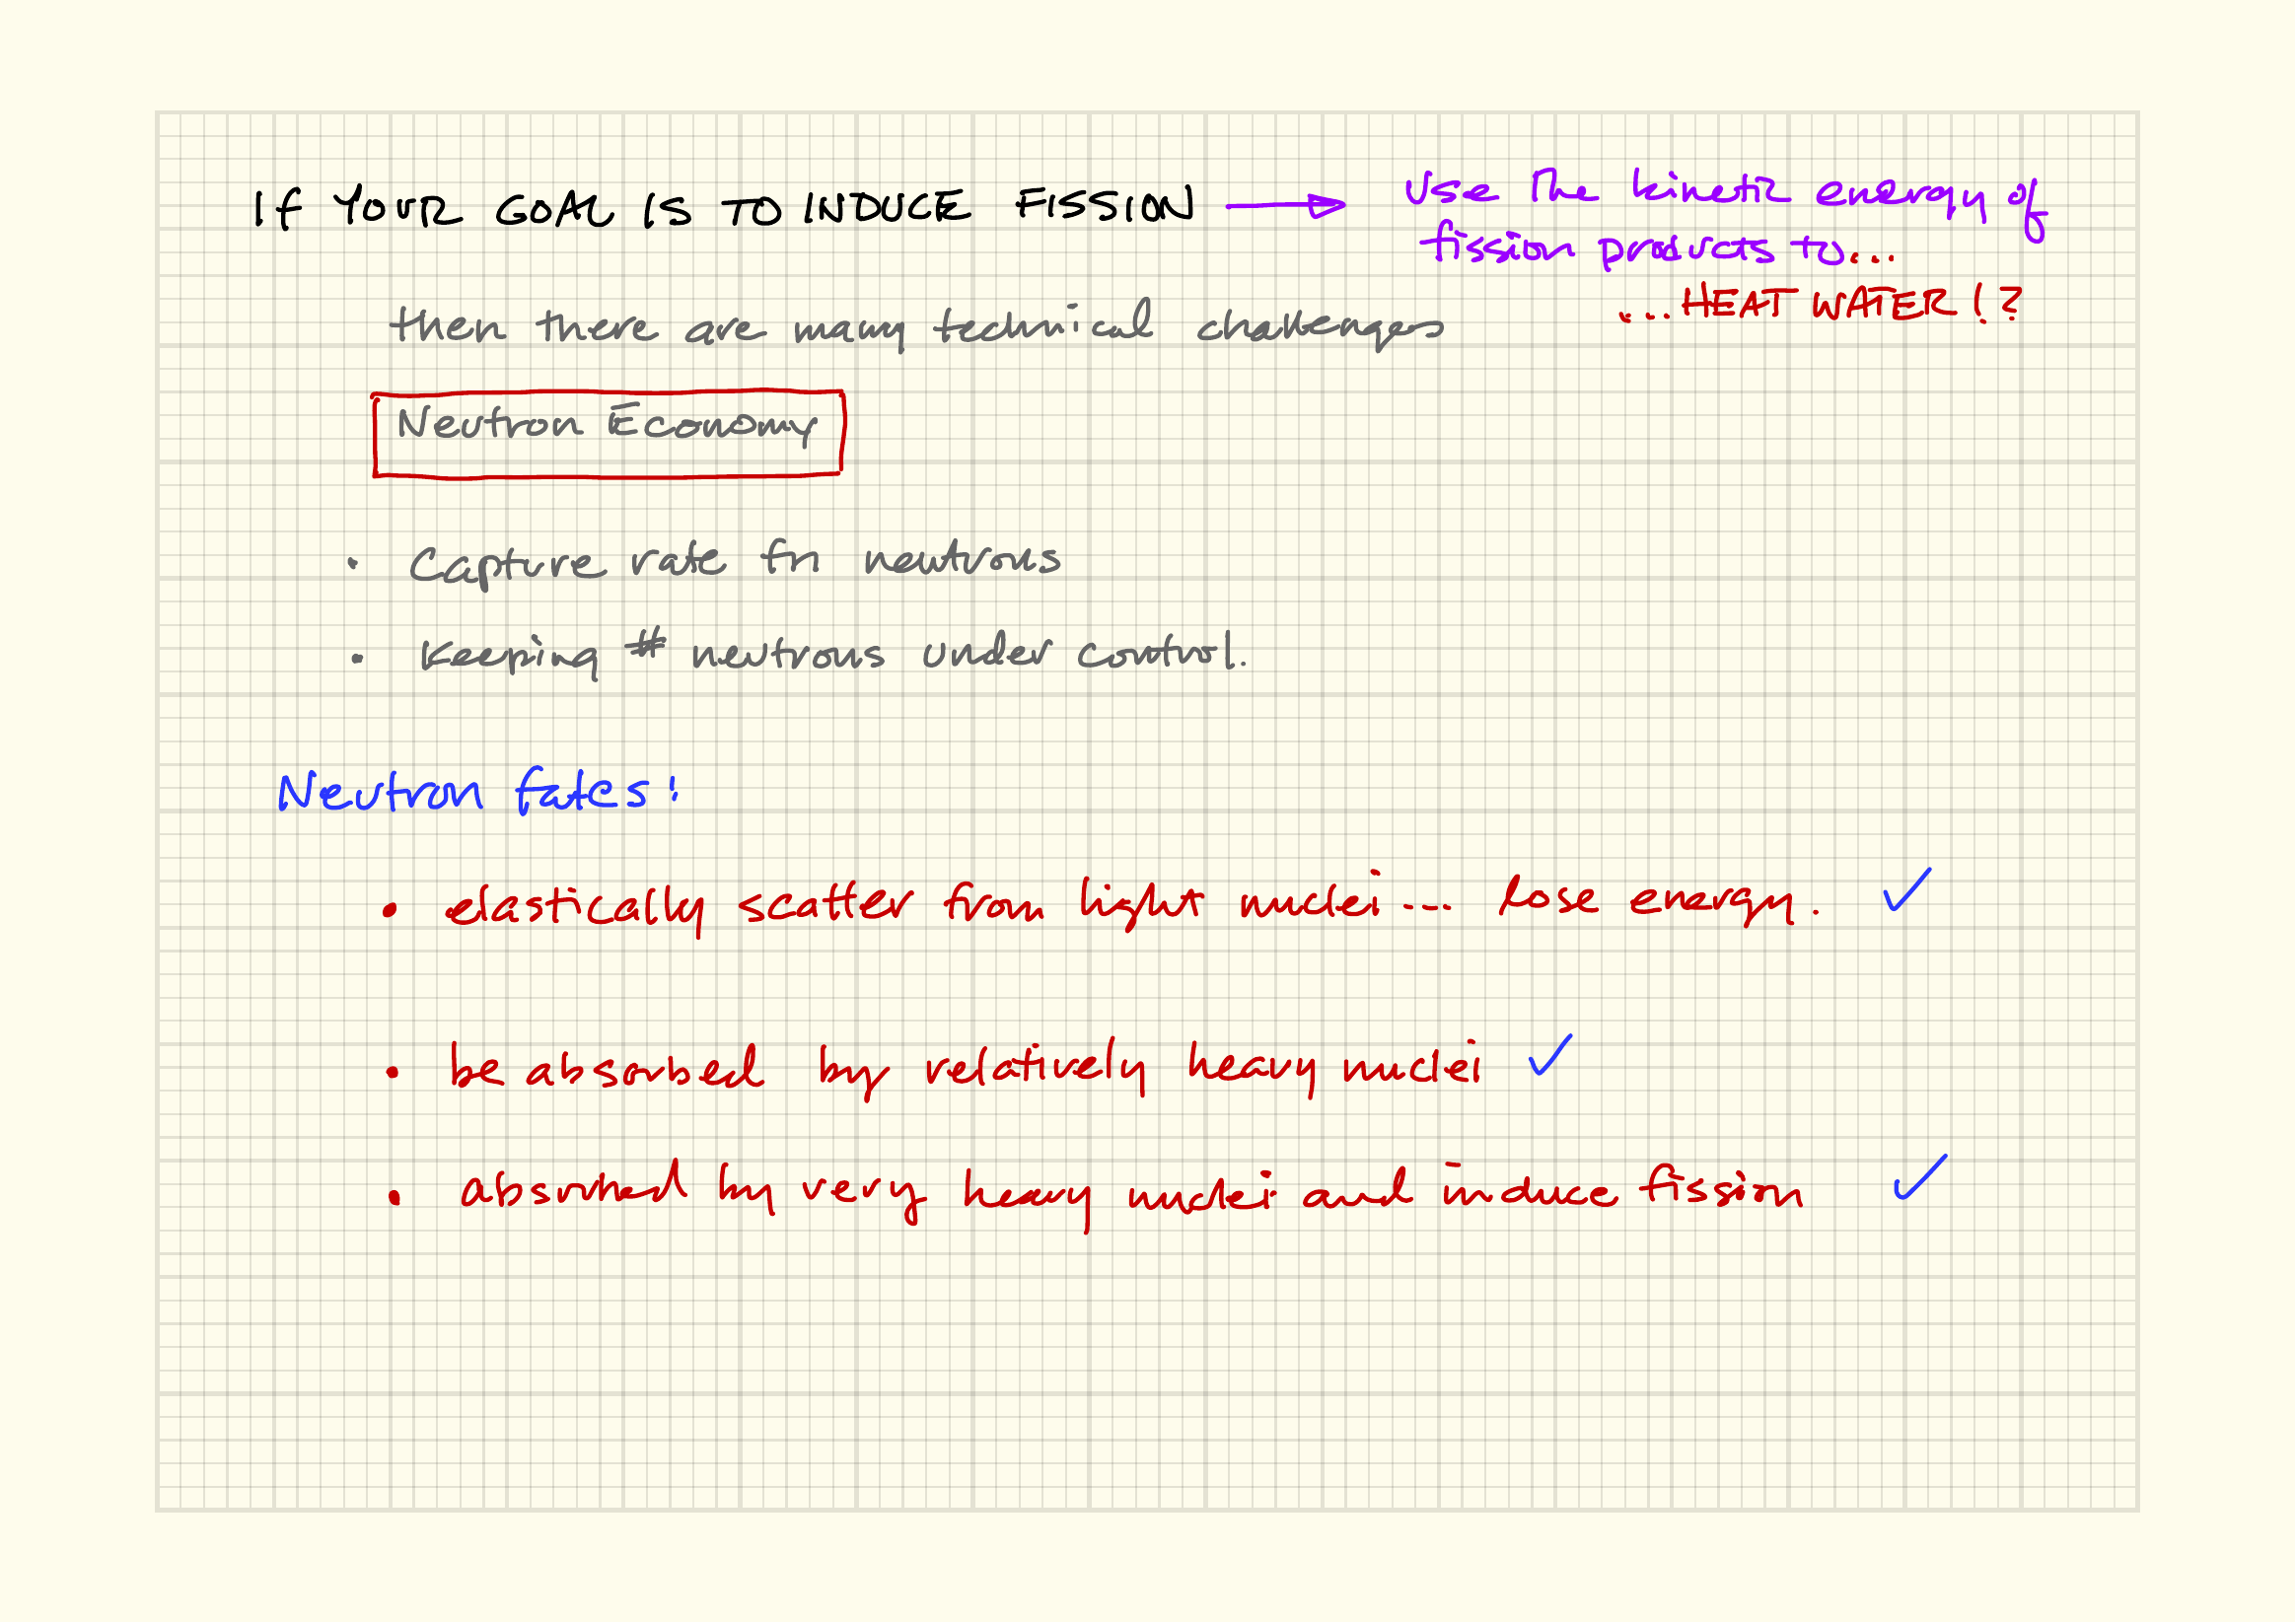 If YOUR GOAL IS TO INDUCE FISSION → Use the kinetic energy of
fission products to...
...HEAT WATER!?
then there are many technical challenges
Neutron Economy
• Capture rate for neutrons
• Keeping # neutrons under control.
Neutron fates:
• elastically scatter from light nuclei... lose energy. ✓
• be absorbed by relatively heavy nuclei ✓
• absorbed by very heavy nuclei and induce fission ✓